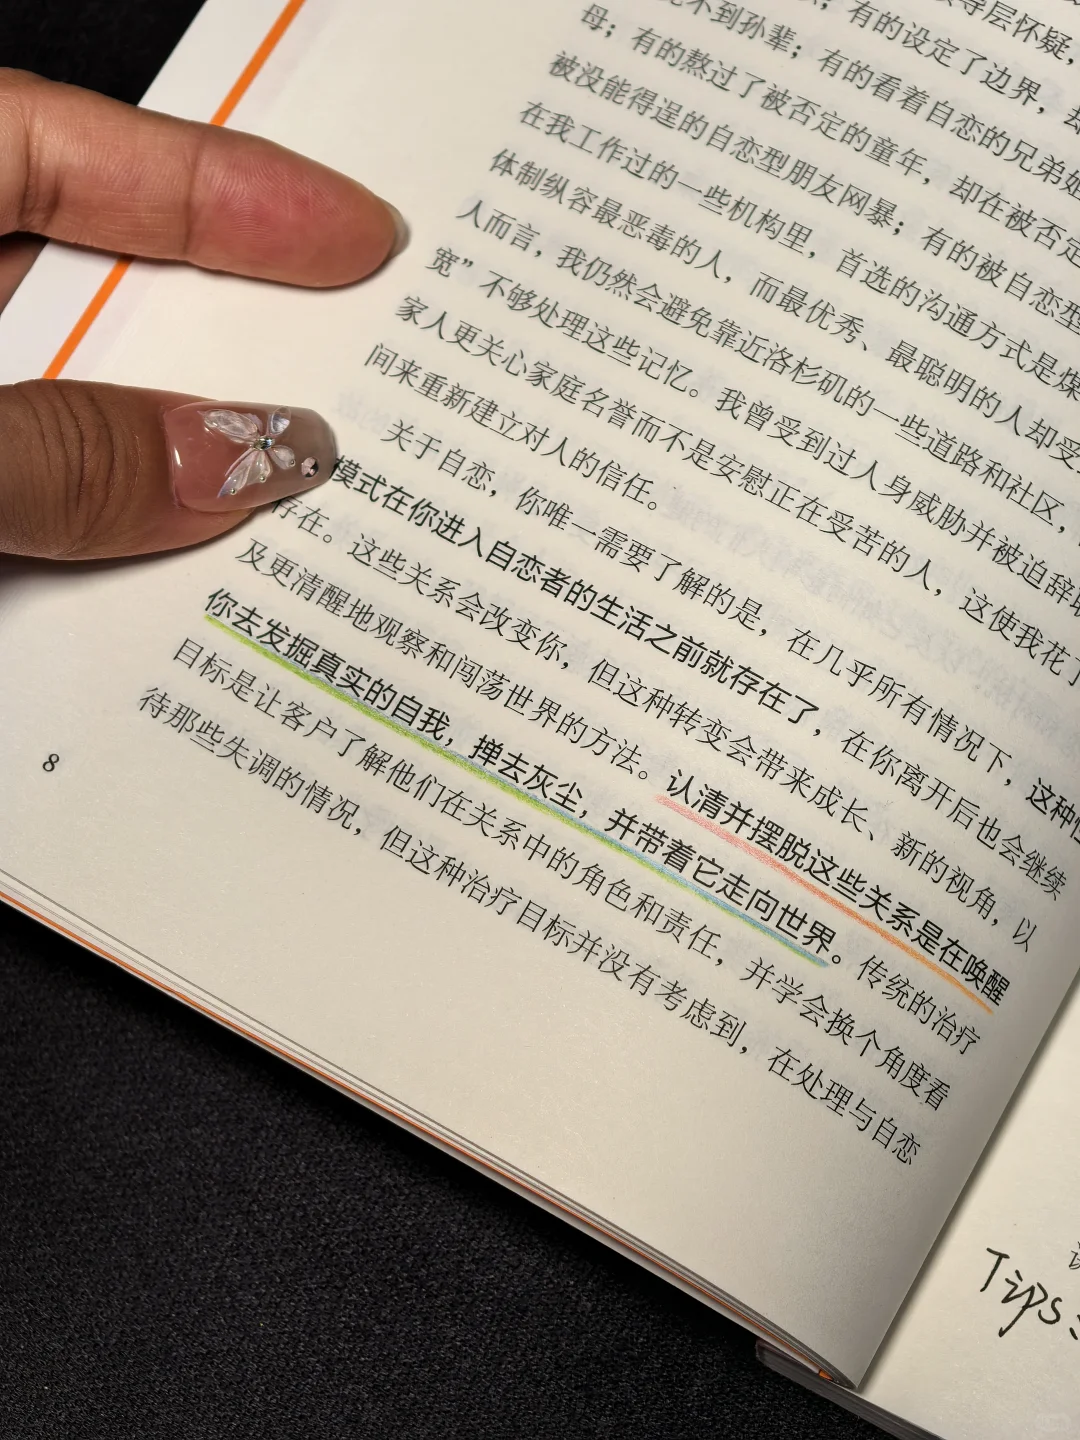 层怀疑，
；有的设定了边界，却
不到孙辈；有的看着自恋的兄弟姐
母；有的熬过了被否定的童年，却在被否定
被没能得逞的自恋型朋友网暴；有的被自恋型
在我工作过的一些机构里，首选的沟通方式是煤
体制纵容最恶毒的人，而最优秀、最聪明的人却受
人而言，我仍然会避免靠近洛杉矶的一些道路和社区，
宽”不够处理这些记忆。我曾受到过人身威胁并被迫辞职
家人更关心家庭名誉而不是安慰正在受苦的人，这使我花了
间来重新建立对人的信任。
关于自恋，你唯一需要了解的是，在几乎所有情况下，这种
模式在你进入自恋者的生活之前就存在了，在你离开后也会继续
存在。这些关系会改变你，但这种转变会带来成长、新的视角，以
及更清醒地观察和闯荡世界的方法。认清并摆脱这些关系是在唤醒
你去发掘真实的自我，掸去灰尘，并带着它走向世界。传统的治疗
目标是让客户了解他们在关系中的角色和责任，并学会换个角度看
待那些失调的情况，但这种治疗目标并没有考虑到，在处理与自恋
8
Tips: